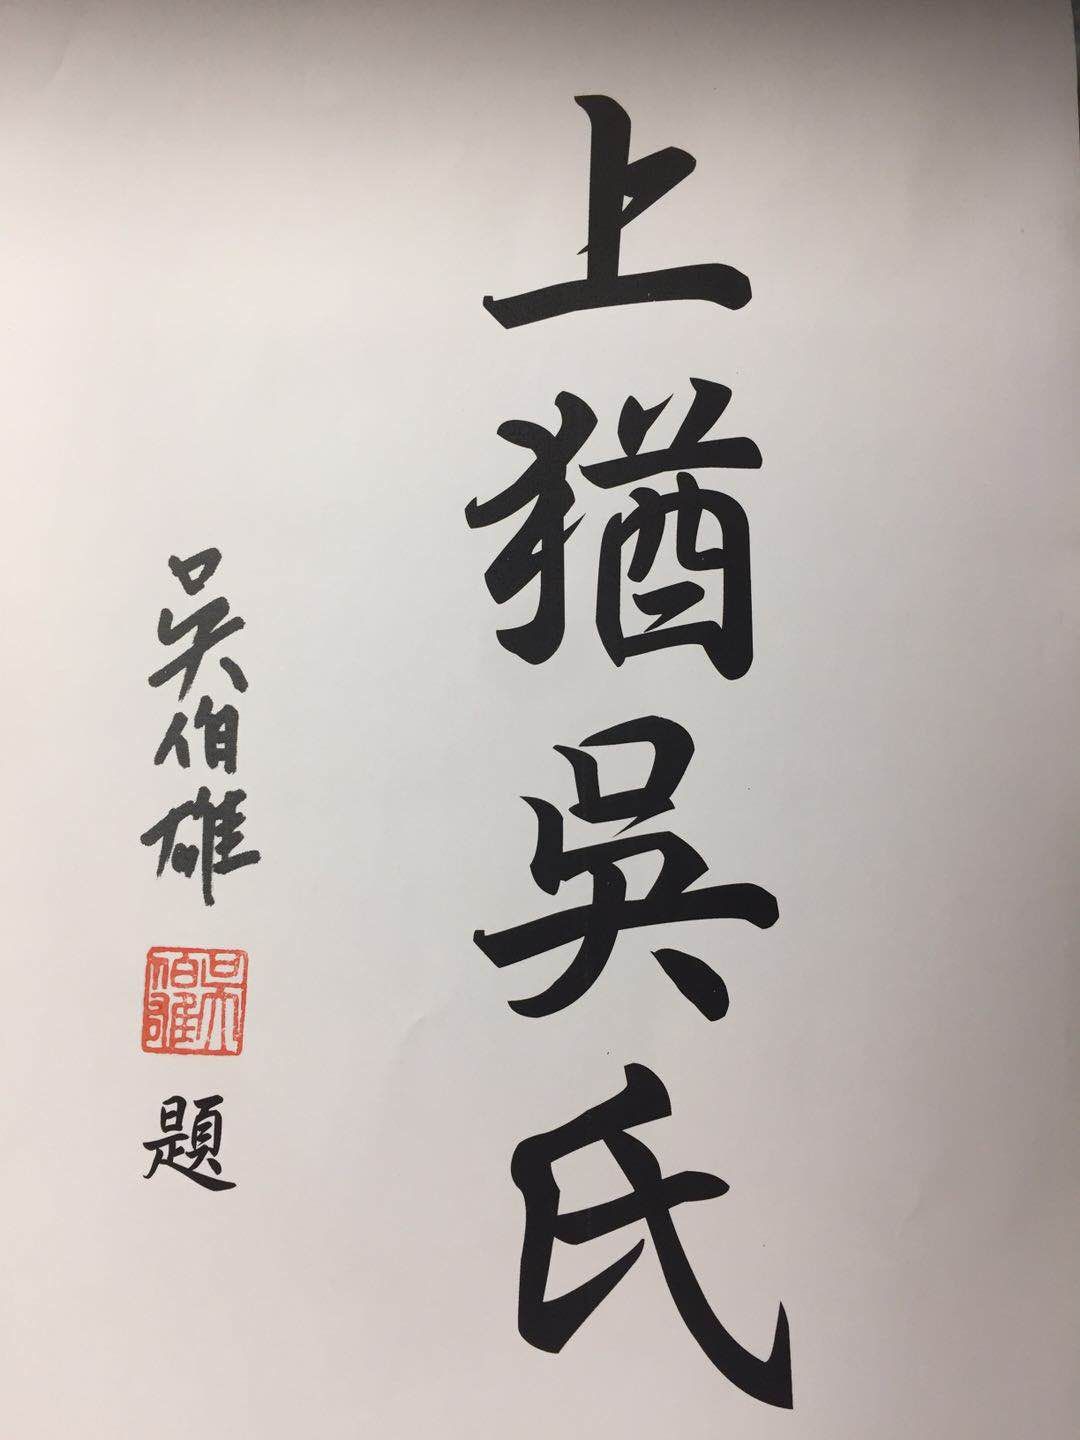 上猶吳氏
吳伯雄
吳伯雄
題